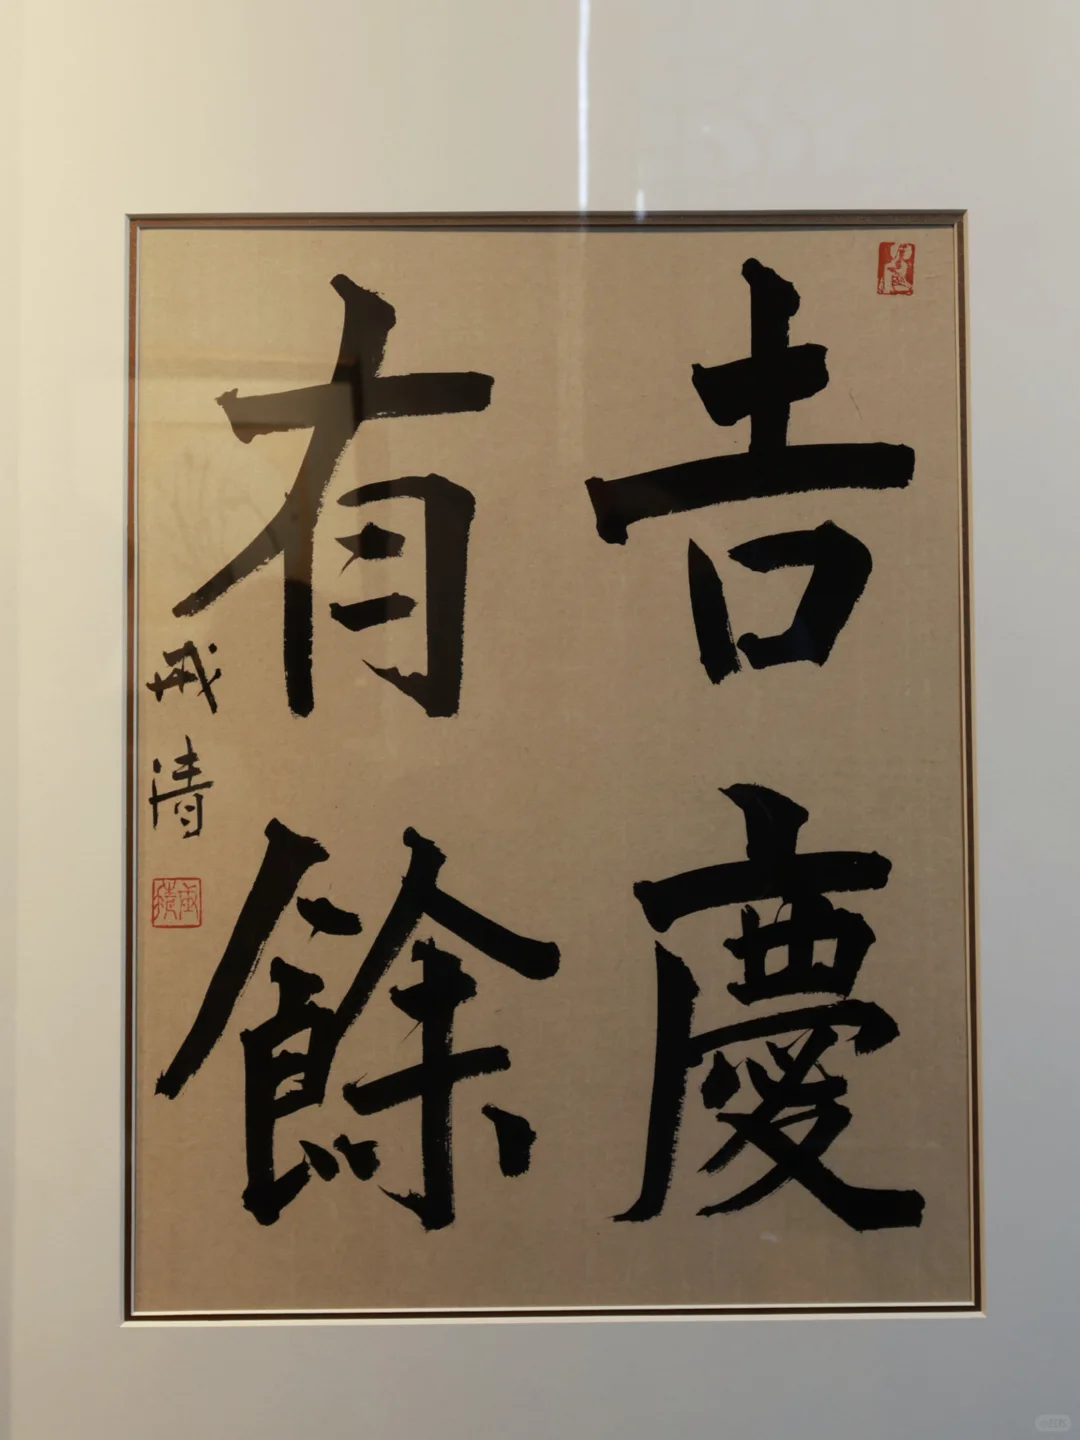 吉慶
有餘
清